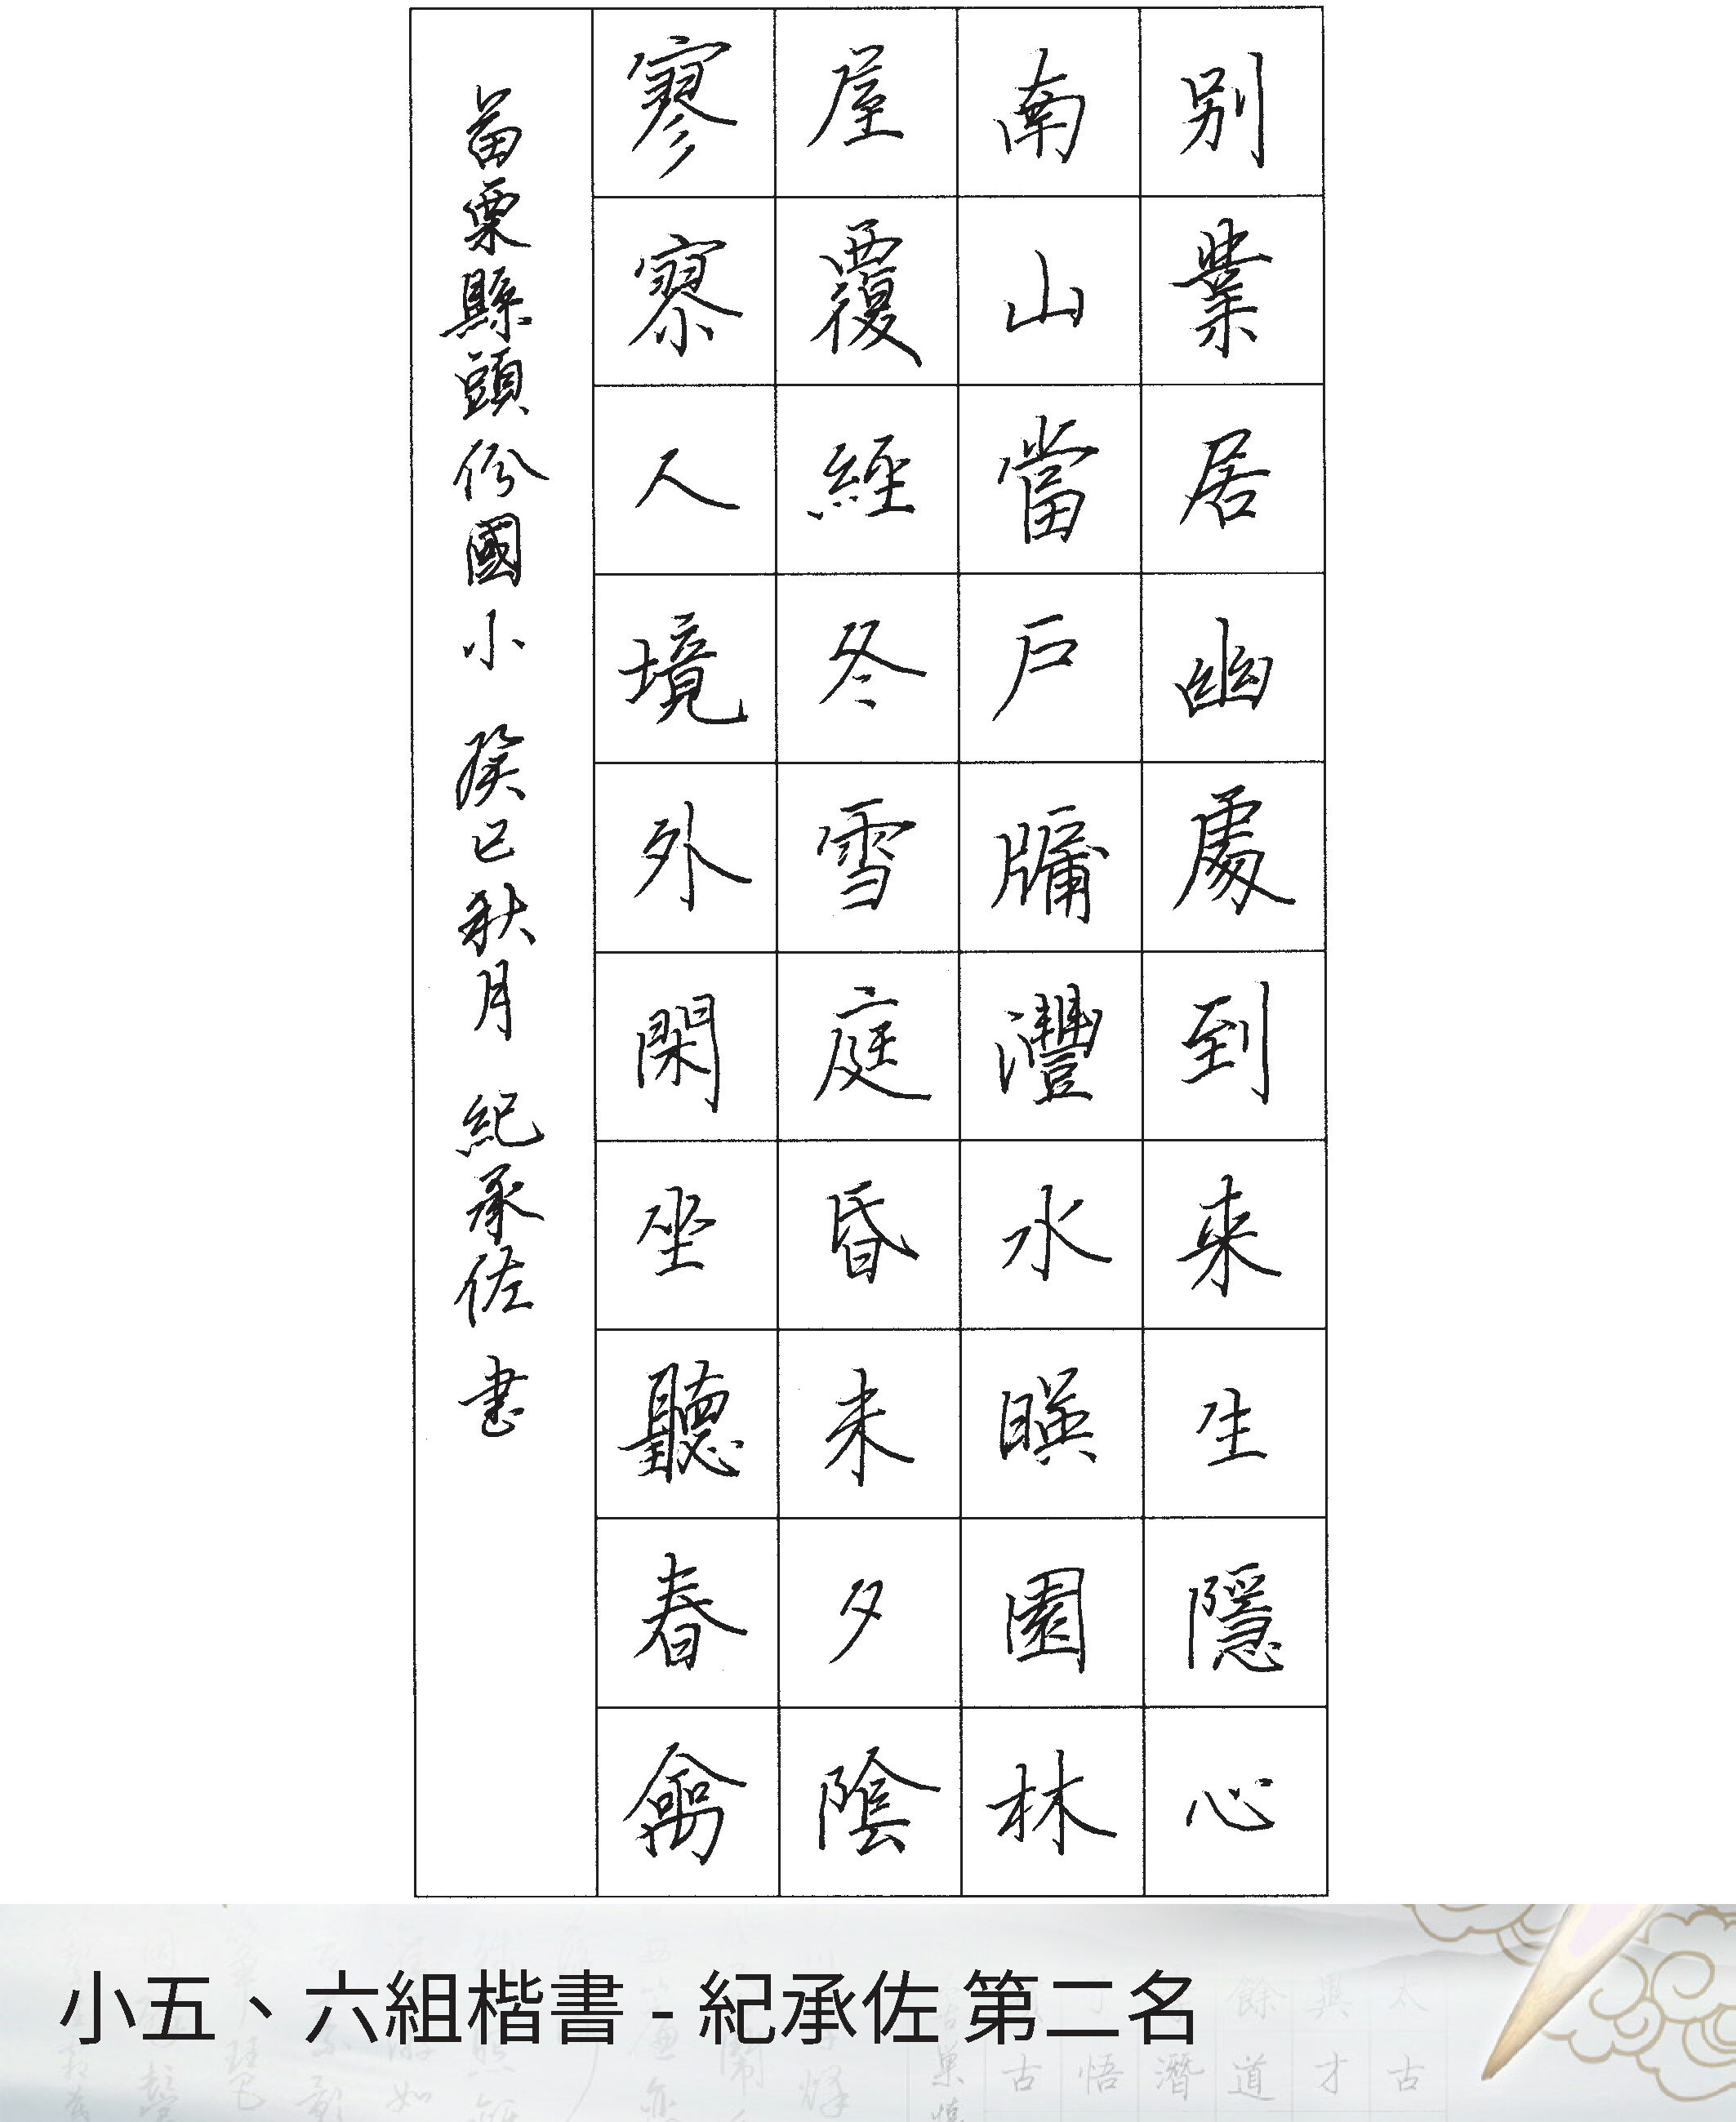 別業居幽處到來生隱心
南山當戶牖灃水映園林
屋覆經冬雪庭昏未夕陰
寥寥人境外閑坐聽春禽
苗栗縣頭份國小 癸巳秋月 紀承佐 書
小五、六組楷書 - 紀承佐 第二名